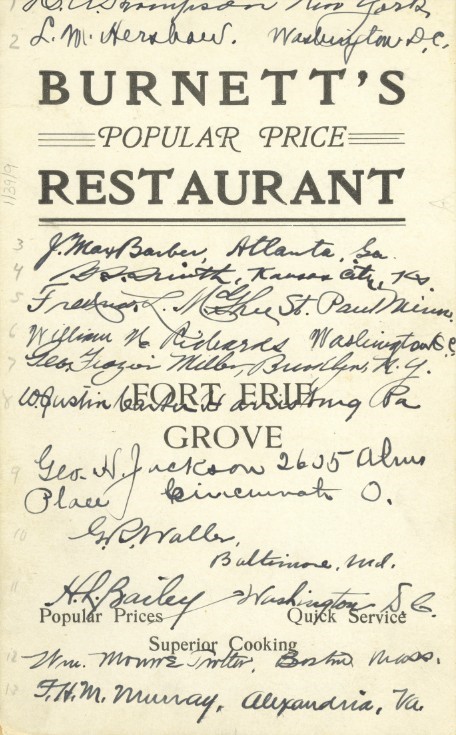 1 H. A. Thompson New York
2 L. M. Hershaw. Washington D.C.
BURNETT'S
POPULAR PRICE
RESTAURANT
1/39/9
3 J. Max Barber, Atlanta, Ga.
4 Smith, Kansas City, Ks.
5 Fredrick L. McGhee St. Paul Minn.
6 William H Richards Washington D.C.
7 Geo. Frazier Miller, Brooklyn, N.Y.
8 W. Justin Carter Harrisburg Pa
FORT ERIE
GROVE
9 Geo. H. Jackson 2635 Alms
Place Cincinnati O.
10 G. R. Waller,
Baltimore, Md.
11 H. L. Bailey Washington D.C.
Popular Prices Quick Service
Superior Cooking
12 Wm. Monroe Trotter, Boston Mass.
13 F. H. M. Murray, Alexandria, Va.